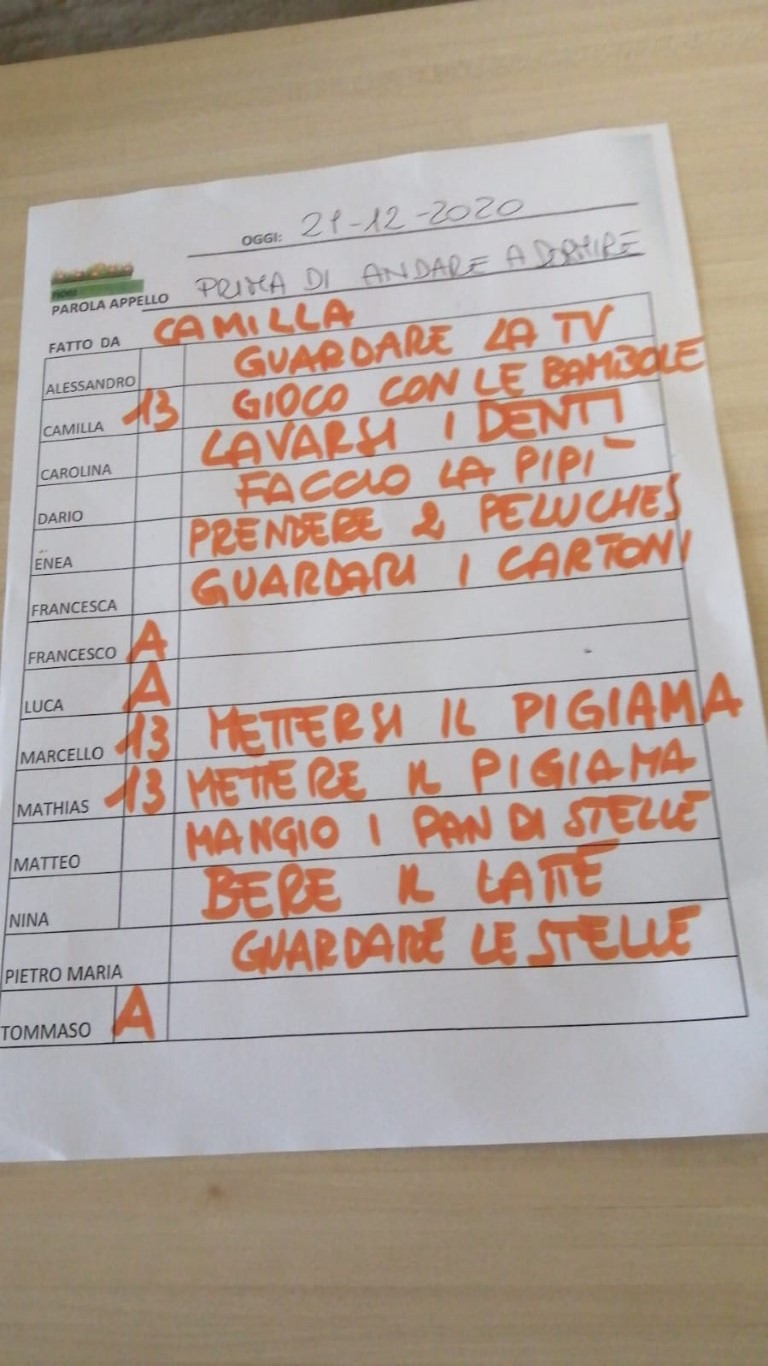 OGGI: 21-12-2020
PAROLA APPELLO PRIMA DI ANDARE A DORMIRE
FATTO DA CAMILLA
ALESSANDRO GUARDARE LA TV
CAMILLA 13 GIOCO CON LE BAMBOLE
CAROLINA LAVARSI I DENTI
DARIO FACCIO LA PIPI
ENEA PRENDERE 2 PELUCHES
FRANCESCA GUARDARE I CARTONI
FRANCESCO A
LUCA A
MARCELLO 13 METTERSI IL PIGIAMA
MATHIAS 13 METTERE IL PIGIAMA
MATTEO MANGIO I PAN DI STELLE
NINA BERE IL LATTE
PIETRO MARIA GUARDARE LE STELLE
TOMMASO A